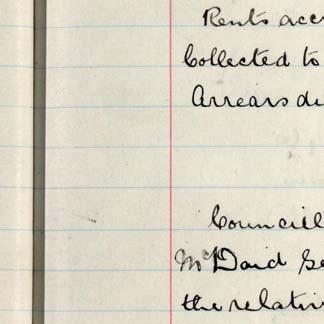 Rents accr
Collected to
Arrears du
Councill
McDaid Se
the relativ